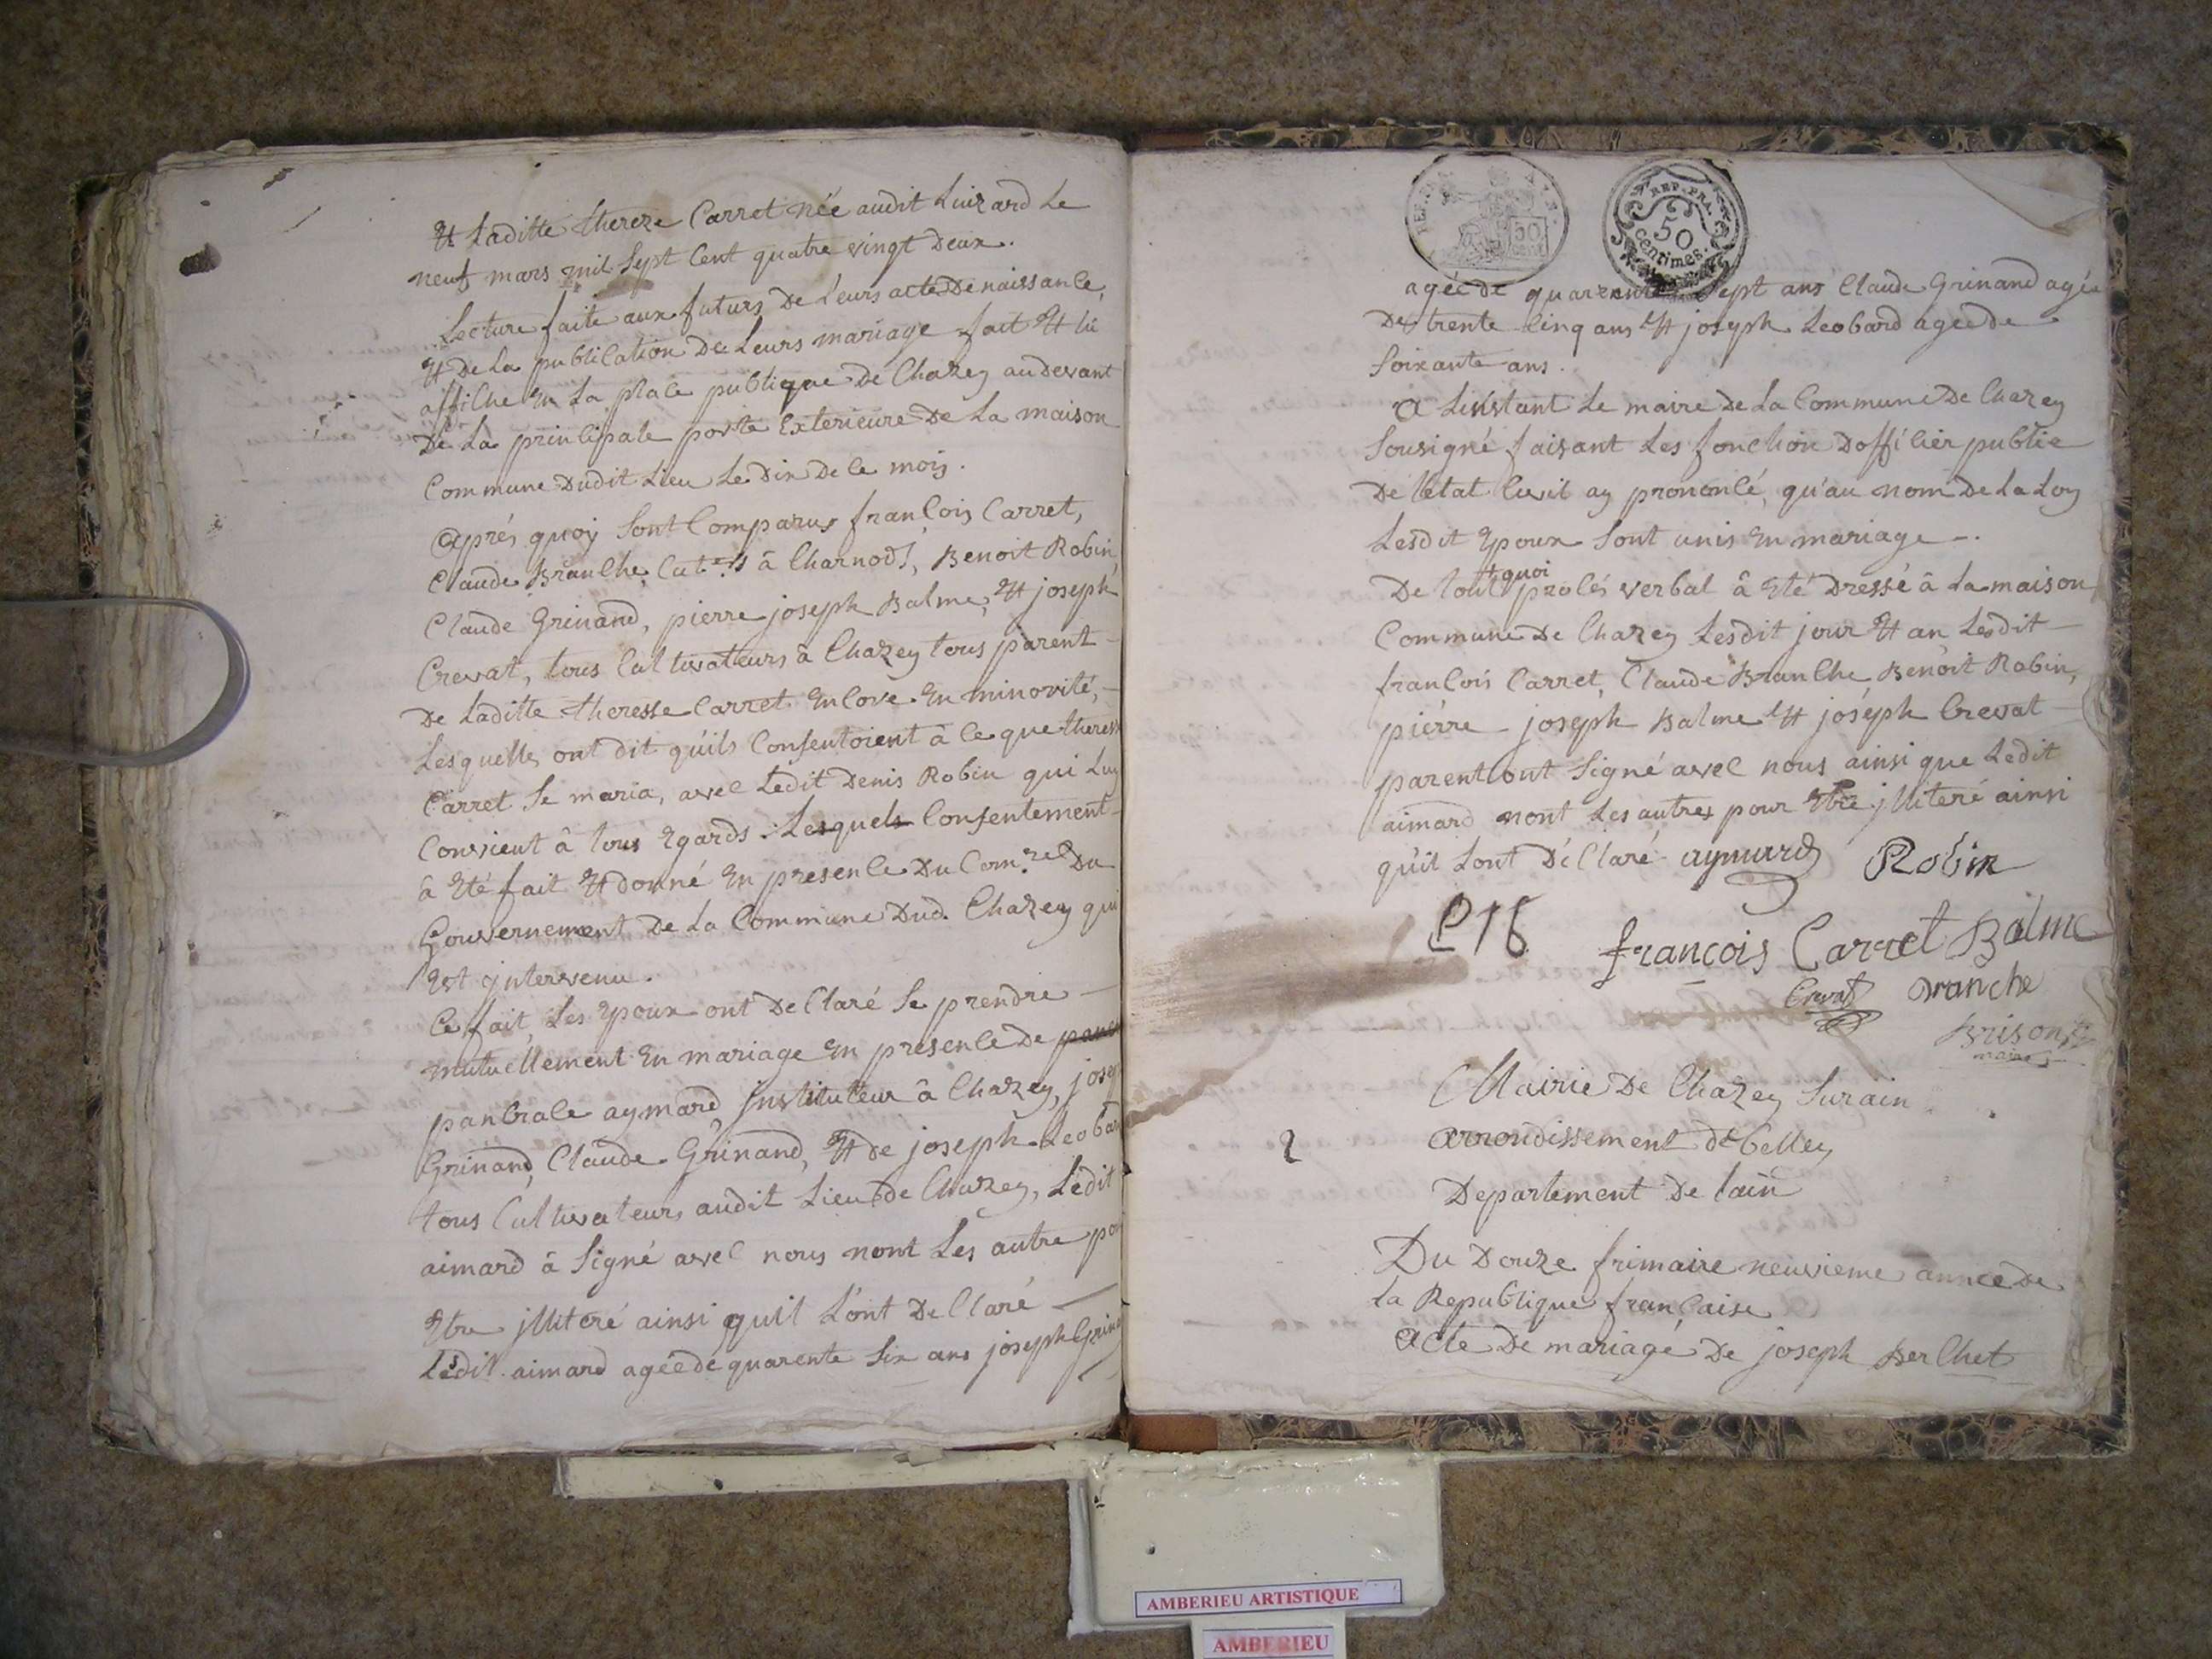 Et Laditte thereze Carret née audit Luizard Le
neuf mars mil Sept Cent quatre vingt Deux.
Lecture faite aux futurs De Leurs acte De naissance,
Et De La publication De Leurs mariage fait Et lu
affiche En La place publique De Chazey au devant
De La principale porte Exterieure De La maison
Commune Dudit Lieu Le Dix De Ce mois.
Après quoy Sont Comparus françois Carret,
Claude Branche, à Charnod, Benoit Robin,
Claude Grinand, pierre joseph Balme, Et joseph
Crevat, tous Cultivateurs à Chazey tous parent
De Laditte theresse Carret Encore En minorité,
Lesquelles ont dit quils Consentoient à Ce que theresse
Carret Se maria, avec Ledit Denis Robin qui Luy
Convient à tous Egards. Lesquels Consentement
à Eté fait Et donné En presence Du Com.re Du
Gouvernement De La Commune Dud. Chazey qui
Est jntervenu.
Ce fait, Les Epoux ont DeClaré Se prendre
mutuellement En mariage En presence De
pancrace aymard, jnstituteur à Chazey, josep
Grinand, Claude Grinand, Et de joseph Leobard
tous Cultivateurs audit Lieu De Chazey, Ledit
aimard à Signé avec nous nont Les autre pour
Etre jlliteré ainsi quil Lont DeClaré
Ledit aimard agée de quarente Six ans joseph Grinand
REP. FRA.
50 CENT.
REP. FRA.
50
centimes
agée de quarente Sept ans Claude Grinand agée
De trente Cinq ans Et joseph Leobard agée de
Soixante ans.
A Linstant Le maire De La Commune De Chazey
Sousigné faisant Les fonction Dofficier publie
De letat Civil ay prononcé, qu'au nom De La Loy
Lesdit Epoux Sont unis En mariage.
quoi
De tout procés verbal à Eté Dressé à La maison
Commune De Chazey Lesdit jour Et an Lesdit
francois Carret, Claude Branche Benoit Robin,
pierre joseph Balme Et joséph Crevat
parent ont Signé avec nous ainsi que Ledit
aimard nont Les autres pour Etre jlliteré ainsi
quil Lont DéClaré aymard Robin
françois Carret Balme
Crevat Branche
Brison
maire
Mairie De Chazey Surain
2 arrondissement de belley
Departement De lain
Du Douze frimaire neuvieme année De
La Republique française
Acte De mariage De joseph Berchet
AMBERIEU ARTISTIQUE
AMBERIEU